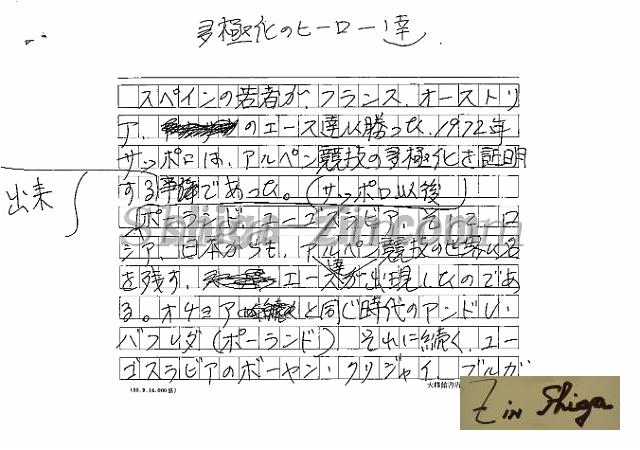 多極化のヒーロー達
スペインの若者が、フランス、オーストリ
ア、のエース達に勝った、1972年
サッポロは、アルペン競技の多極化を証明
する事であった。(サッポロ以後)
出来
ポーランド、ユーゴスラビア、そしてロ
シア、日本からも、アルペン競技の世界に名
を残す、エース達が出現したのであ
る。オチョアと同じ時代のアンドレイ・
バフレダ(ポーランド)、それに続く、ユー
ゴスラビアのボーヤン・クリジャイ、ブルガ
Z in Shiga